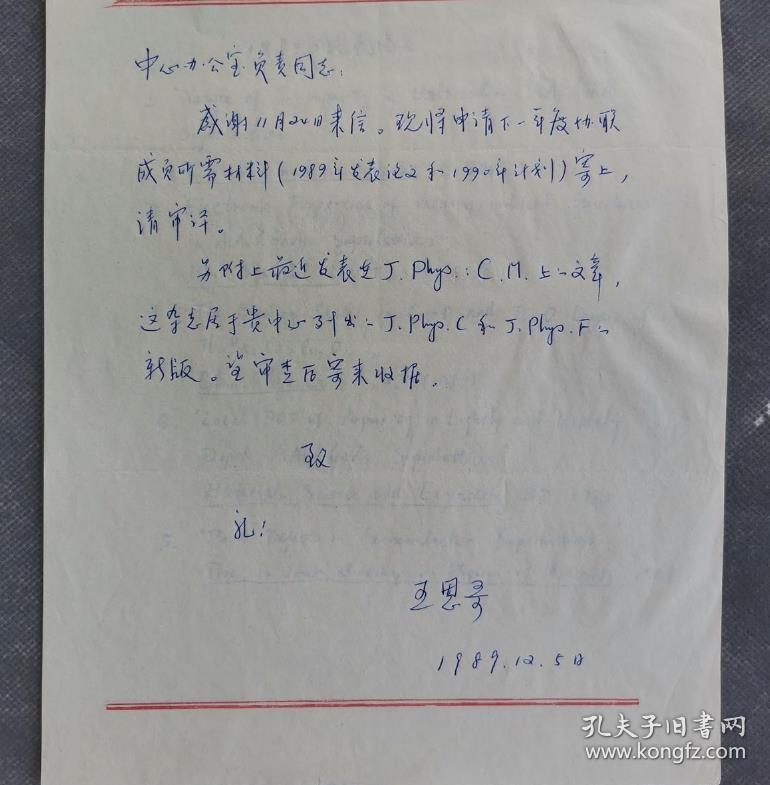 中心办公室负责同志：
感谢11月24日来信。现将申请下一年度协联
成员所需材料（1989年发表论文和1990年计划）寄上，
请审评。
另附上最近发表在J. Phys.: C. M. 上一文章，
这杂志属于贵中心列出的J. Phys. C 和 J. Phys. F的
新版。望审查后寄来收据。
致
礼！
王恩哥
1989.12.5日
孔夫子旧书网
www.kongfz.com